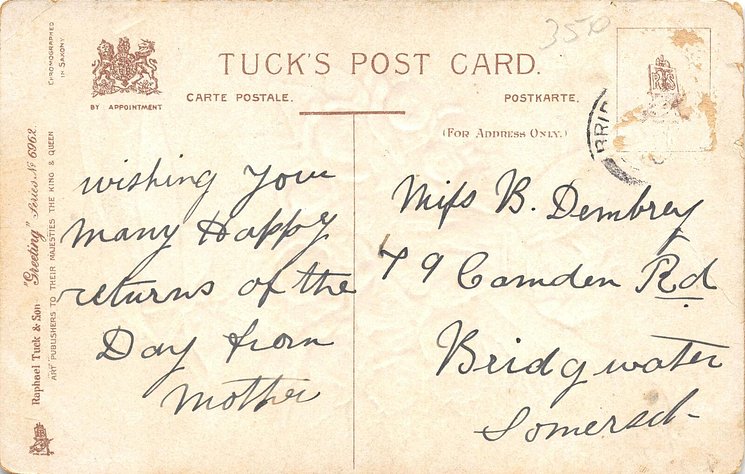 CHROMOGRAPHED
IN SAXONY
BY APPOINTMENT
TUCK'S POST CARD.
CARTE POSTALE.
POSTKARTE.
(FOR ADDRESS ONLY.)
3570
BRID
Raphael Tuck & Son "Greeting" Series No 6962.
ART PUBLISHERS TO THEIR MAJESTIES THE KING & QUEEN
wishing you
many Happy
returns of the
Day from
Mother
Miss B. Dembrey
79 Camden Rd
Bridgwater
Somerset